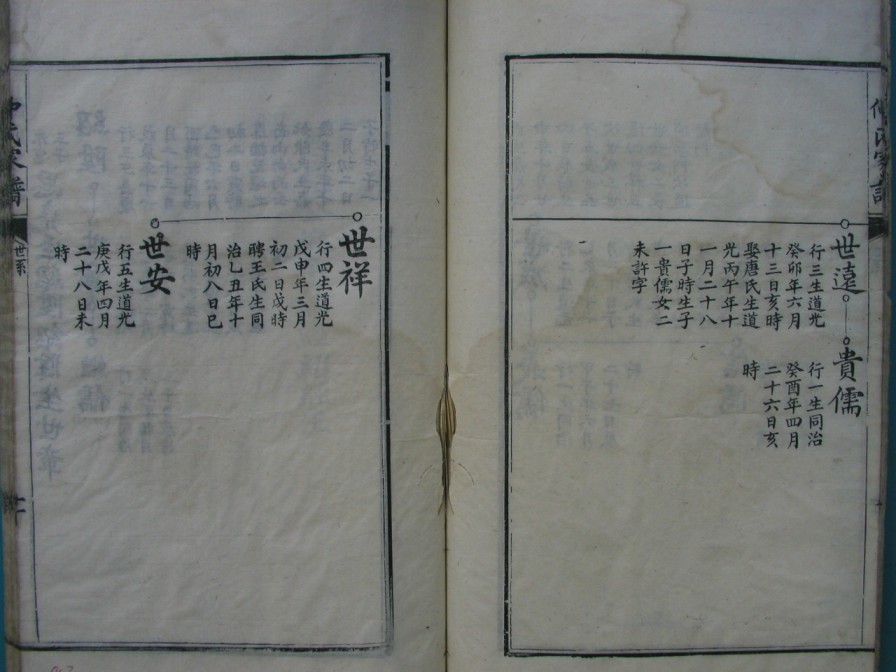 世遠
行三生道光
癸卯年六月
十三日亥時
娶唐氏生道
光丙午年十
一月二十八
日子時生子
一貴儒女二
未許字
貴儒
行一生同治
癸酉年四月
二十六日亥
時
世祥
行四生道光
戊申年三月
初二日戌時
聘王氏生同
治乙丑年十
月初八日巳
時
世安
行五生道光
庚戌年四月
二十八日未
時
氏家譜
世系